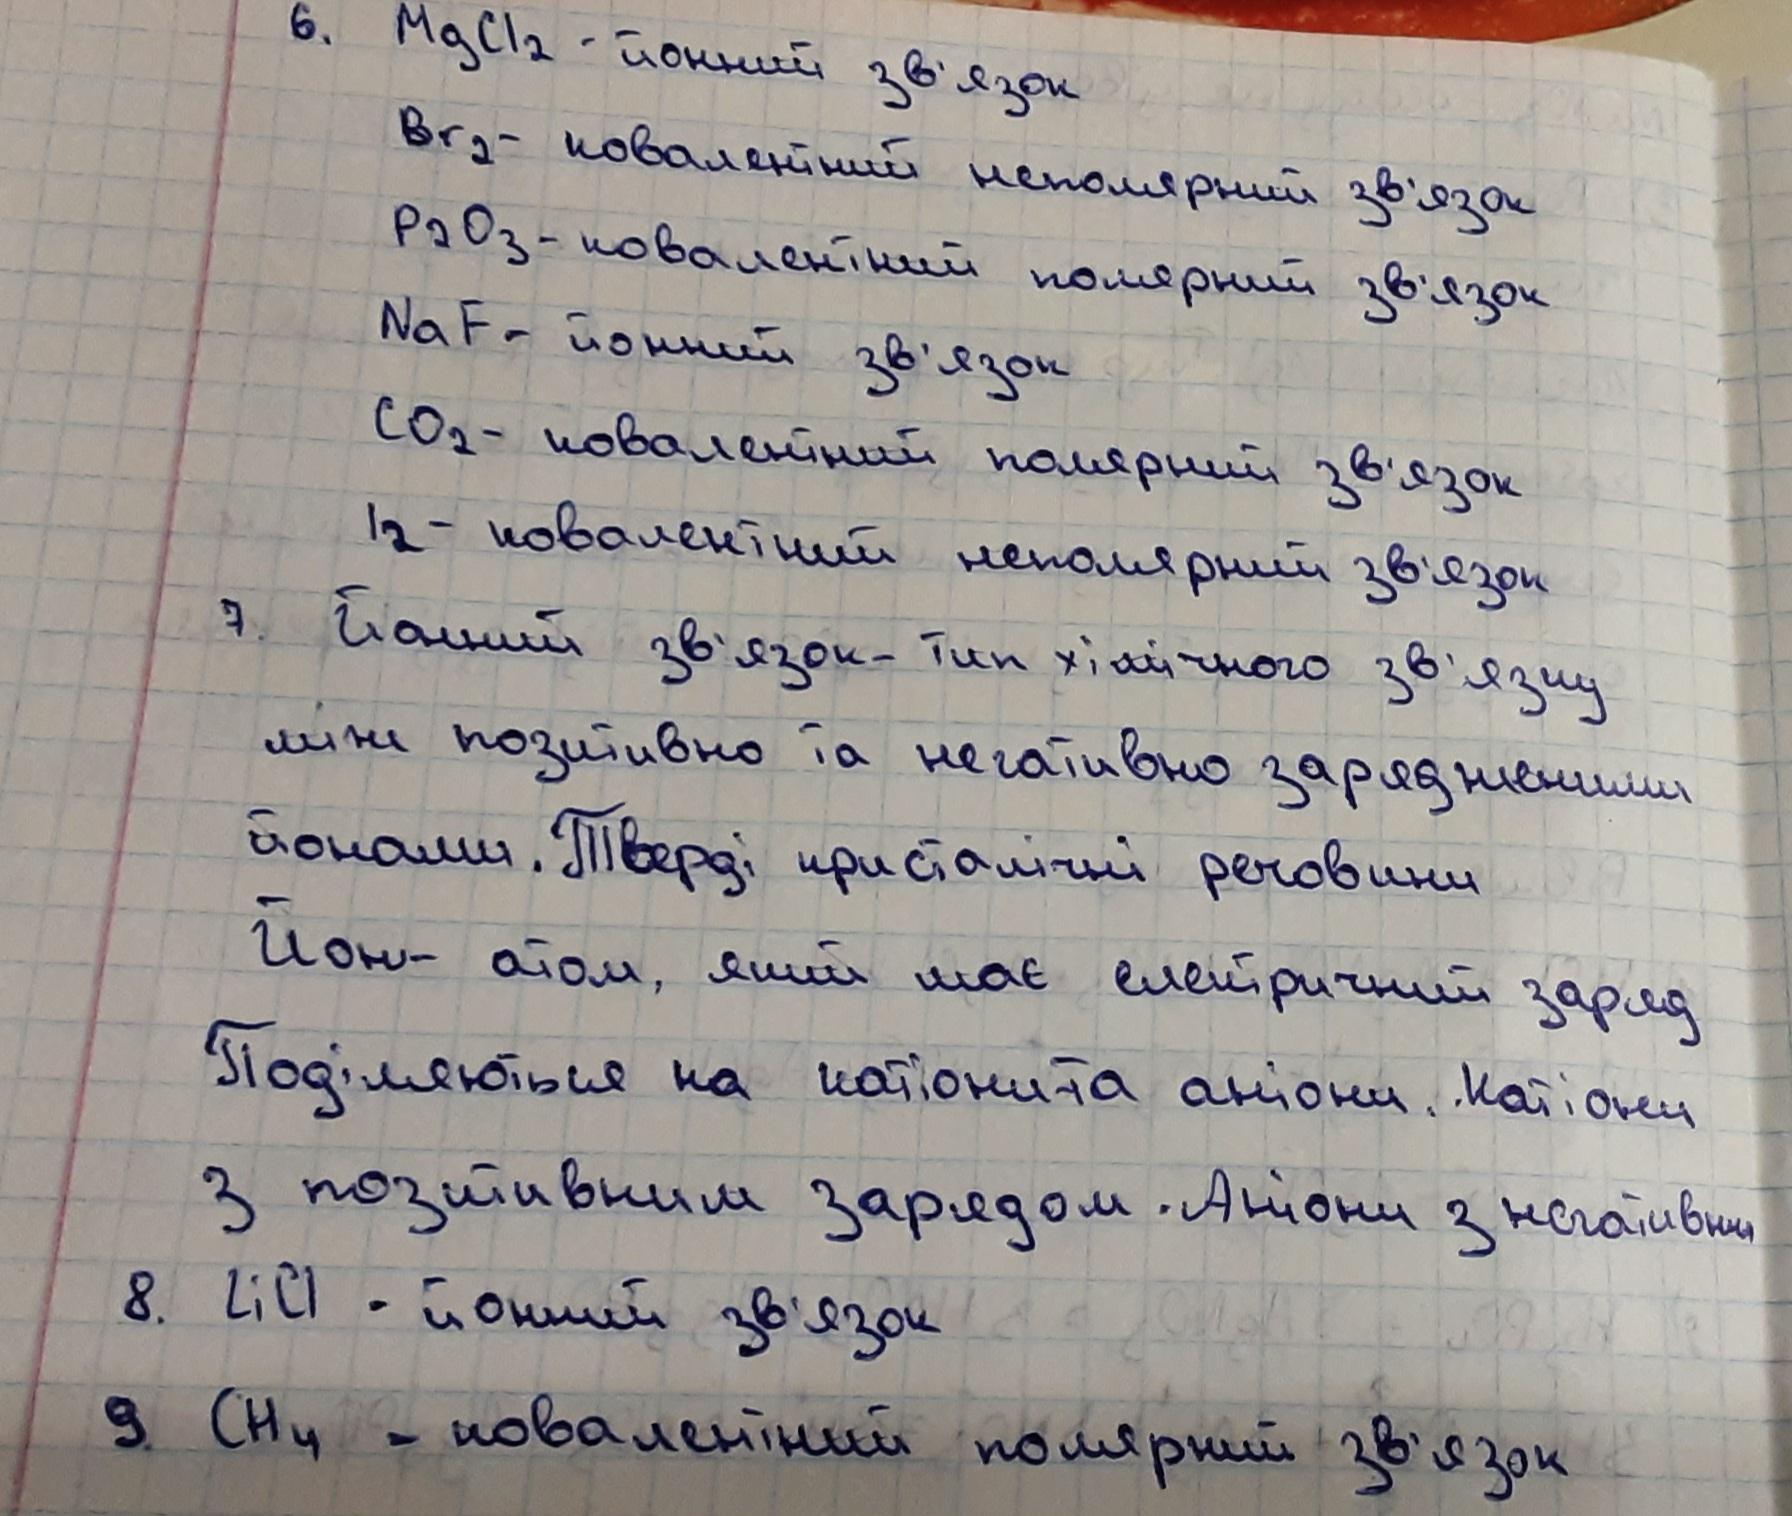 6. MgCl2 - йонний зв'язок
Br2 - ковалентний неполярний зв'язок
P2O3 - ковалентний полярний зв'язок
NaF - йонний зв'язок
CO2 - ковалентний полярний зв'язок
I2 - ковалентний неполярний зв'язок
7. Йонний зв'язок - тип хімічного зв'язку
між позитивно та негативно зарядженими
йонами. Тверді кристалічні речовини
Йон - атом, який має електричний заряд
Поділяються на катіони та аніони. Катіони
з позитивним зарядом. Аніони з негативним
8. LiCl - йонний зв'язок
9. CH4 - ковалентний полярний зв'язок